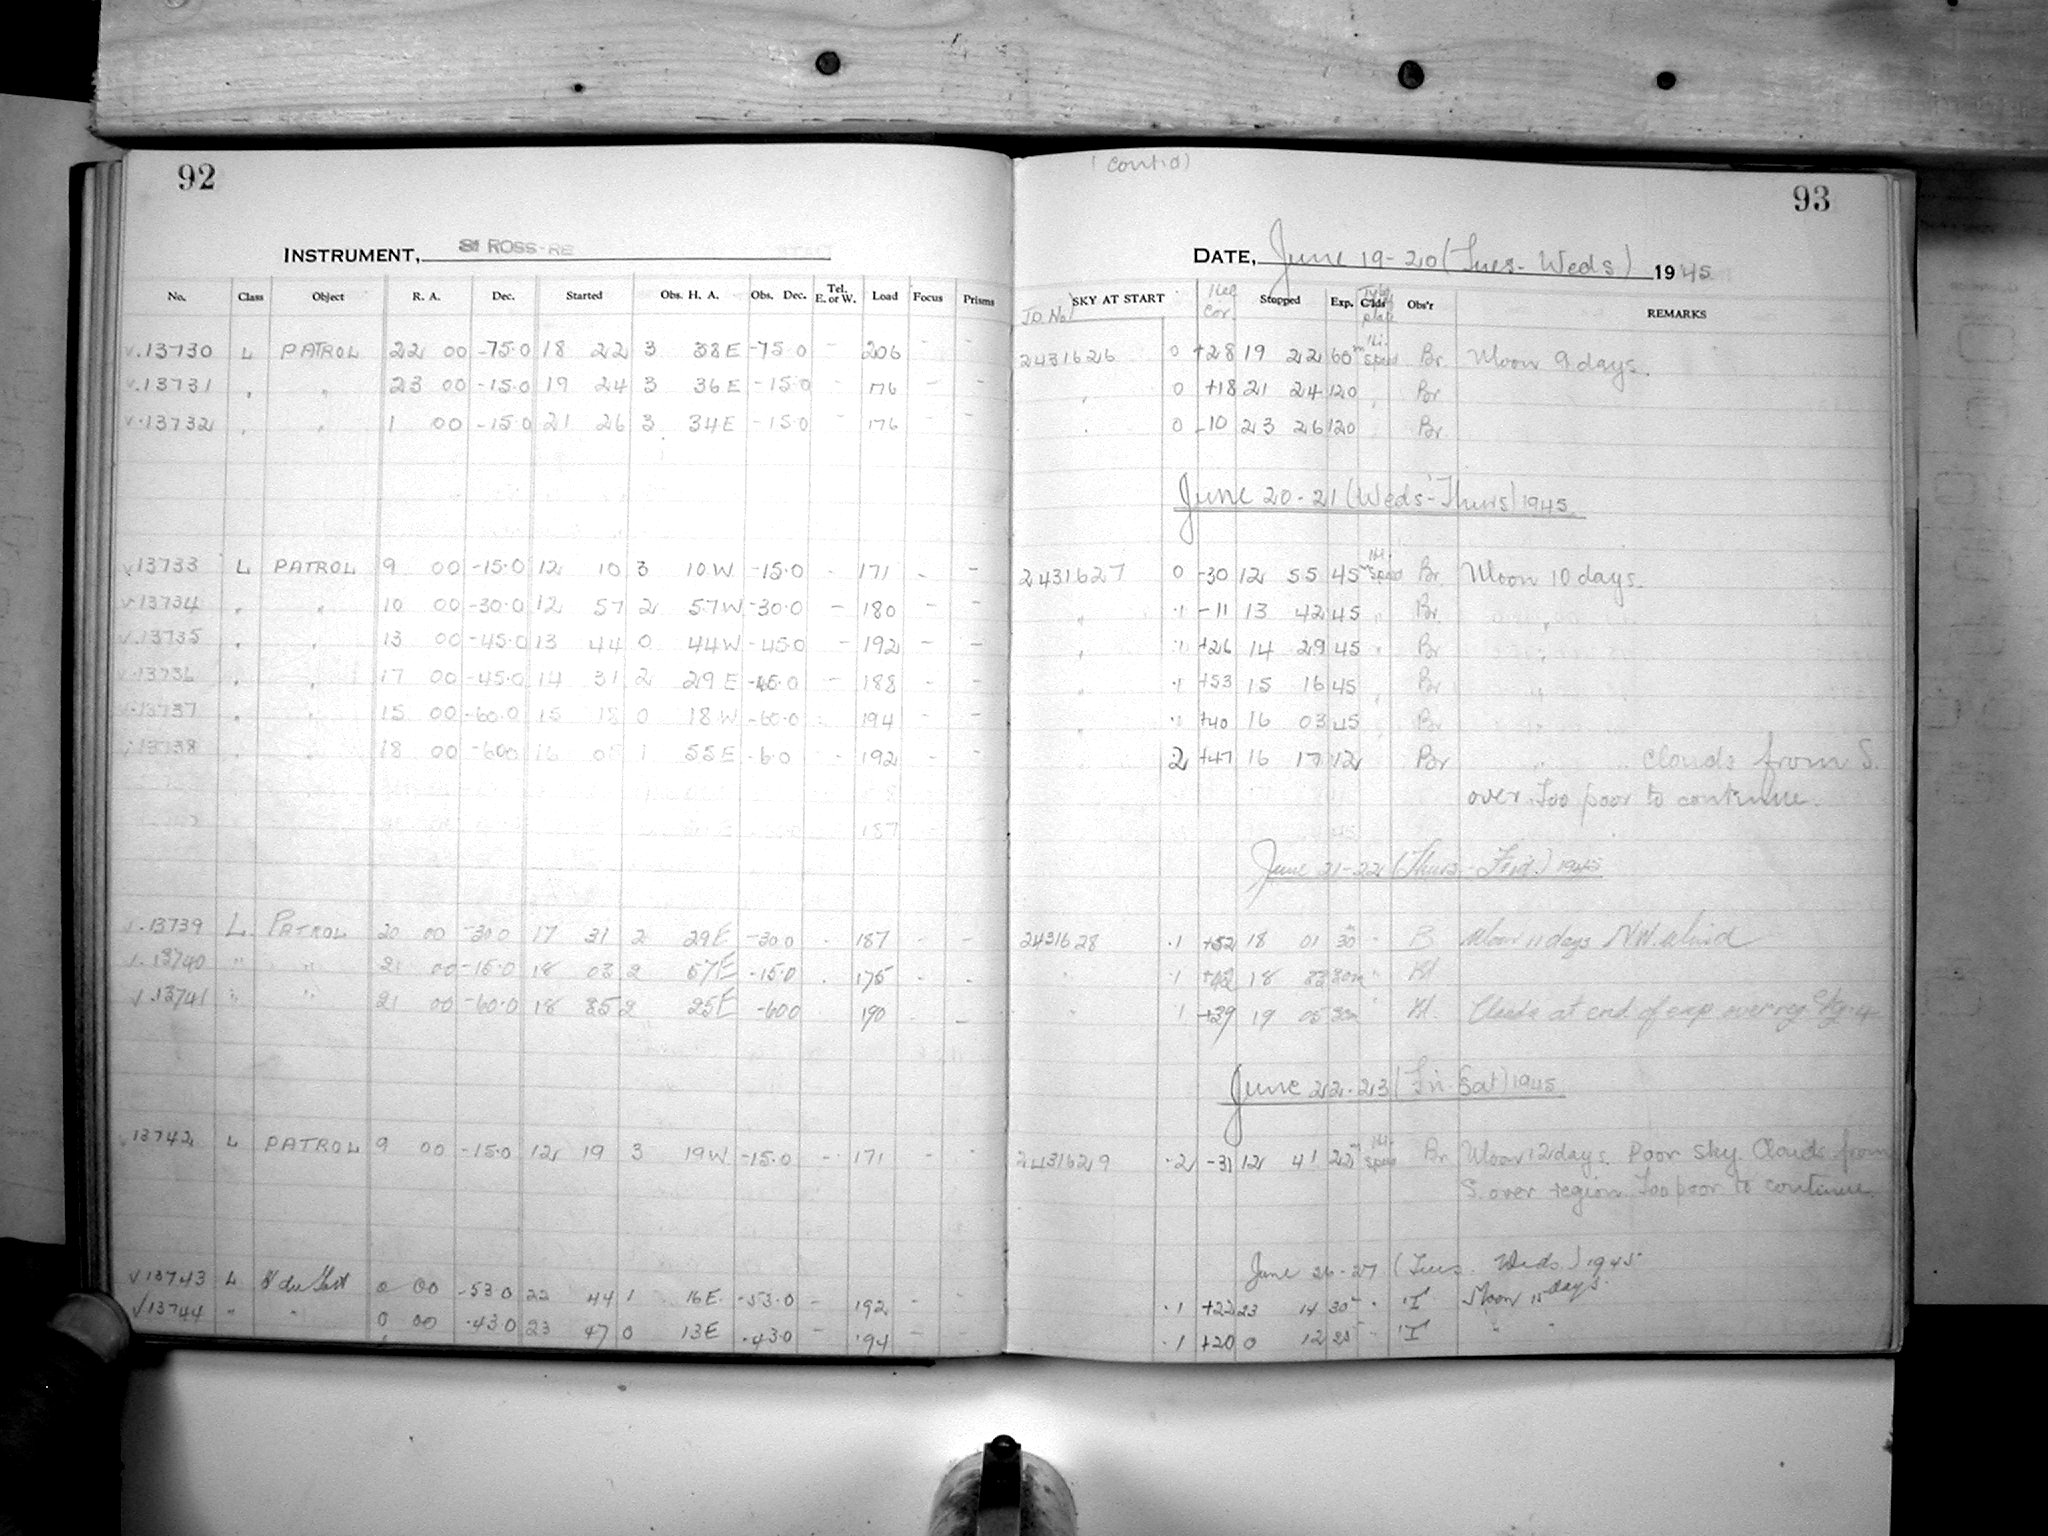 92
INSTRUMENT, ROSS-
No. Class Object R. A. Dec. Started Obs. H. A. Obs. Dec. Tel. E. or W. Load Focus Prisms
v.13730 L PATROL 22 00 -75.0 18 22 3 38E -75.0 - 206 - -
v.13731 " " 23 00 -15.0 19 24 3 36E -15.0 - 176 - -
v.13732 " " 1 00 -15.0 21 26 3 34E -15.0 - 176 - -
v13733 L PATROL 9 00 -15.0 12 10 3 10W -15.0 - 171 - -
v.13734 " " 10 00 -30.0 12 57 2 57W -30.0 - 180 - -
v.13735 " " 13 00 -45.0 13 44 0 44W -45.0 - 192 - -
v.13736 " " 17 00 -45.0 14 31 2 29E -45.0 - 188 - -
v.13737 " " 15 00 -60.0 15 18 0 18W -60.0 - 194 - -
v.13738 " " 18 00 -600 16 05 1 55E -6.0 - 192 - -
187
v.13739 L PATROL 20 00 -300 17 31 2 29E -300 - 187 - -
v.13740 " " 21 00 -15.0 18 03 2 57E -15.0 . 175 - -
v.13741 " " 21 00 -60.0 18 35 2 25E -600 190 - -
13742 L PATROL 9 00 -15.0 12 19 3 19W -15.0 - 171 - -
√13743 L 0 00 -53 0 22 44 1 16E -53.0 - 192 - -
√13744 " " 0 00 -43 0 23 47 0 13E -43 0 - 194 -
(cont'd)
93
DATE, June 19-20 (Tues-Weds) 1945
J.D. No. SKY AT START Cor. Stopped Exp. C'lds Type plate Obs'r REMARKS
2431626 0 +28 19 22 60m Hi. Speed Br. Moon 9 days.
" 0 +18 21 24 120 " Br
" 0 -10 23 26 120 " Br
June 20-21 (Weds-Thurs) 1945
2431627 0 -30 12 55 45m Hi. Speed Br. Moon 10 days.
" .1 -11 13 42 45 " Br "
" .1 +26 14 29 45 " Br "
" .1 +53 15 16 45 " Br "
" .1 +40 16 03 45 " Br "
2 +47 16 17 12 Br " Clouds from S.
over. Too poor to continue.
June 21-22 (Thurs-Frid.) 1945
2431628 .1 +52 18 01 30m " B Moon 11 days NW. Wind
" .1 18 33 30m "
" 1 +39 19 05 30m " Clouds at end of exp over reg. Sky 4
June 22-23 (Fri-Sat) 1945
2431629 .2 -31 12 41 22m Hi. Speed Br Moon 12 days. Poor sky. Clouds from
S. over region. Too poor to continue
June 26-27 (Tues. Weds.) 1945
.1 +22 23 14 30m " "I" Moon 15 days.
.1 +20 0 12 25 " "I" " "